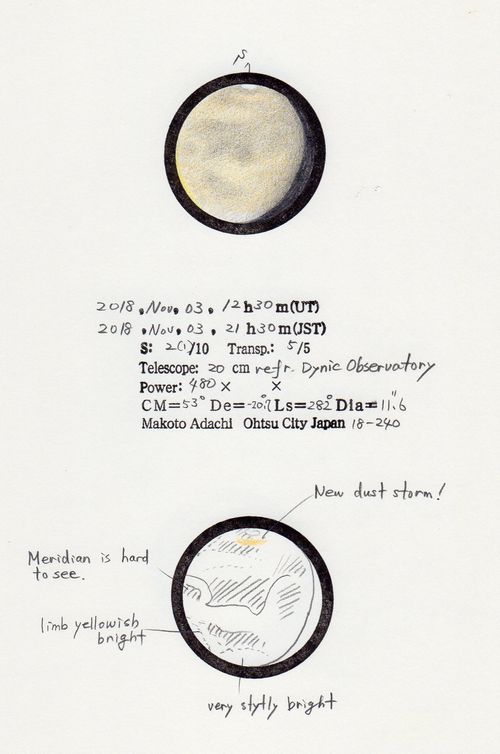 S
2018, Nov, 03, 12h30m(UT)
2018, Nov, 03, 21h30m(JST)
S: 2(1)/10 Transp.: 5/5
Telescope: 20 cm refr. Dynic Observatory
Power: 480× ×
CM=53° De=-20.7° Ls=282° Dia=11.6"
Makoto Adachi Ohtsu City Japan 18-240
New dust storm!
Meridian is hard
to see.
limb yellowish
bright
very slytly bright